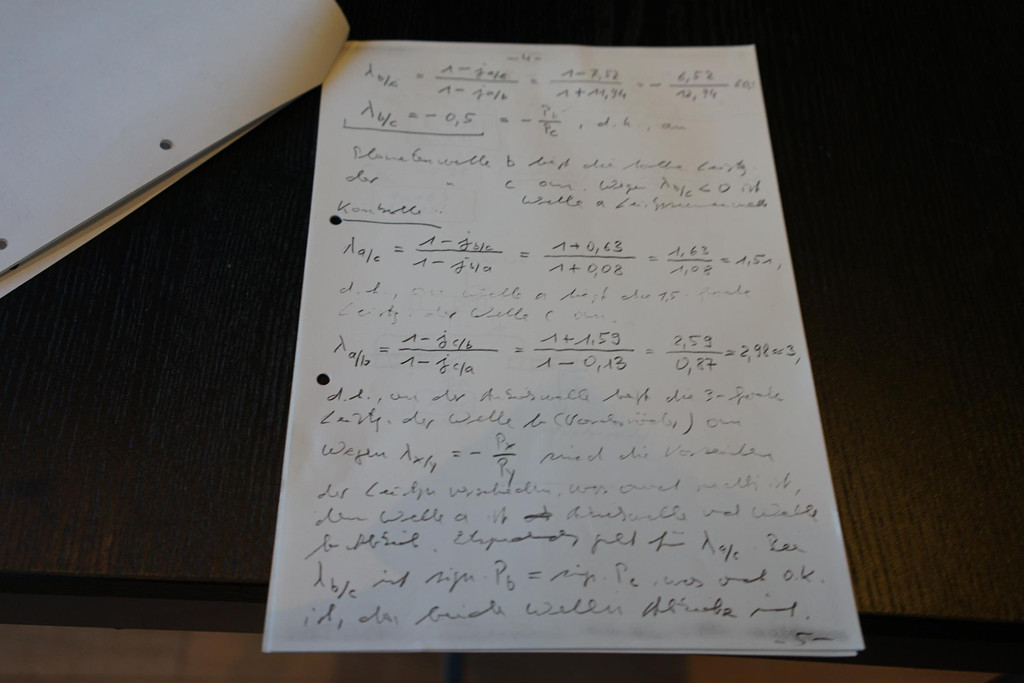 -4-
λb/c = (1 - ja/c)/(1 - ja/b) = (1 - 7,52)/(1 + 11,94) = - 6,52/12,94
λb/c = - 0,5 = - Pb/Pc, d.h., an
Planetenwelle b liegt die halbe Leistg.
der " c an. Wegen λb/c < 0 ist
Welle a
Kontrolle:
λa/c = (1 - jb/c)/(1 - jb/a) = (1 + 0,63)/(1 + 0,08) = 1,63/1,08 = 1,51,
d.h., an Welle a liegt die 1,5-fache
Leistg. der Welle c an.
λa/b = (1 - jc/b)/(1 - jc/a) = (1 + 1,59)/(1 - 0,13) = 2,59/0,87 = 2,98 ≈ 3,
d.h., an der Antriebswelle liegt die 3-fache
Leistg. der Welle b an
Wegen λx/y = - Px/Py sind die Vorzeichen
der Leistgn verschieden, was auch richtig ist,
denn Welle a ist Antriebswelle und Welle
b Abtrieb. gilt für λa/c. Bei
λb/c ist sign. Pb = sign. Pc, was auch o.k.
ist, da beide Wellen Abtriebe sind.
-5-